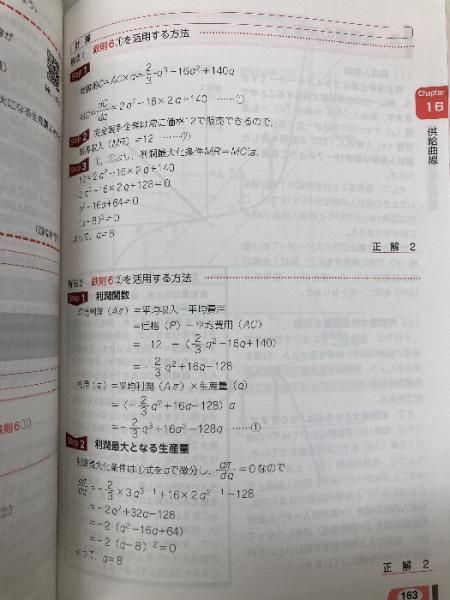 計算
解法1 鉄則6①を活用する方法
Step 1
総費用C=AC×q=2/3 q³−16q²+140q
MC=dC/dq=2q²−16×2q+140 ……①
Step 2 完全競争企業は常に価格12で販売できるので、
限界収入(MR)=12 ……②
Step 3 ①、②より、利潤最大化条件MR=MCは、
12=2q²−16×2q+140
2q²−16×2q+128=0
q²−16q+64=0
(q−8)²=0
よって、q=8
正解 2
解法2 鉄則6②を活用する方法
Step 1 利潤関数
平均利潤(Aπ)=平均収入−平均費用
=価格(P)−平均費用(AC)
= 12 −(2/3 q²−16q+140)
=−2/3 q²+16q−128
利潤(π)=平均利潤(Aπ)×生産量(q)
=(−2/3 q²+16q−128)q
=−2/3 q³+16q²−128q ……①
Step 2 利潤最大となる生産量
利潤最大化条件は①式をqで微分し、dπ/dq=0なので
dπ/dq=−2/3×3q³⁻¹+16×2q²⁻¹−128
=−2q²+32q−128
=−2(q²−16q+64)
=−2(q−8)²=0
よって、q=8
正解 2
Chapter
16
供給曲線
163
鉄則6①)